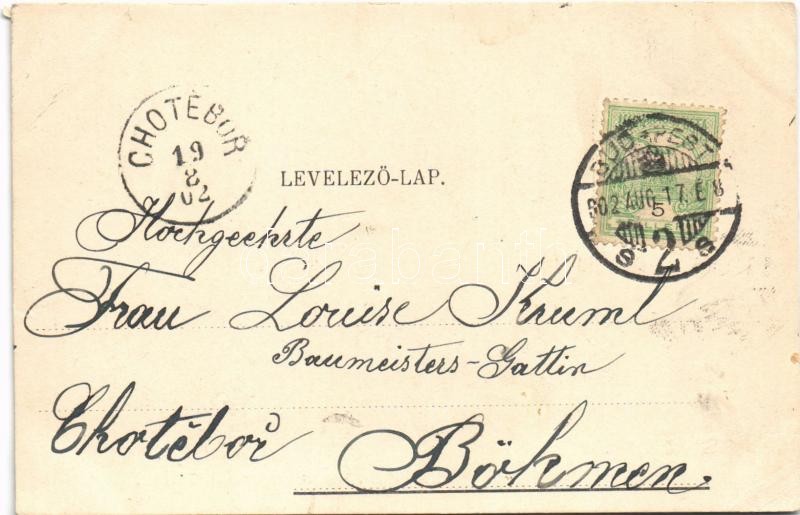 CHOTĚBOŘ
19
8
02
LEVELEZŐ-LAP.
BUDAPEST
902 AUG. 17. E 8
5
S 2 S
Hochgeehrte
Frau Louise Kruml
Baumeisters-Gattin
Chotěboř
Böhmen.